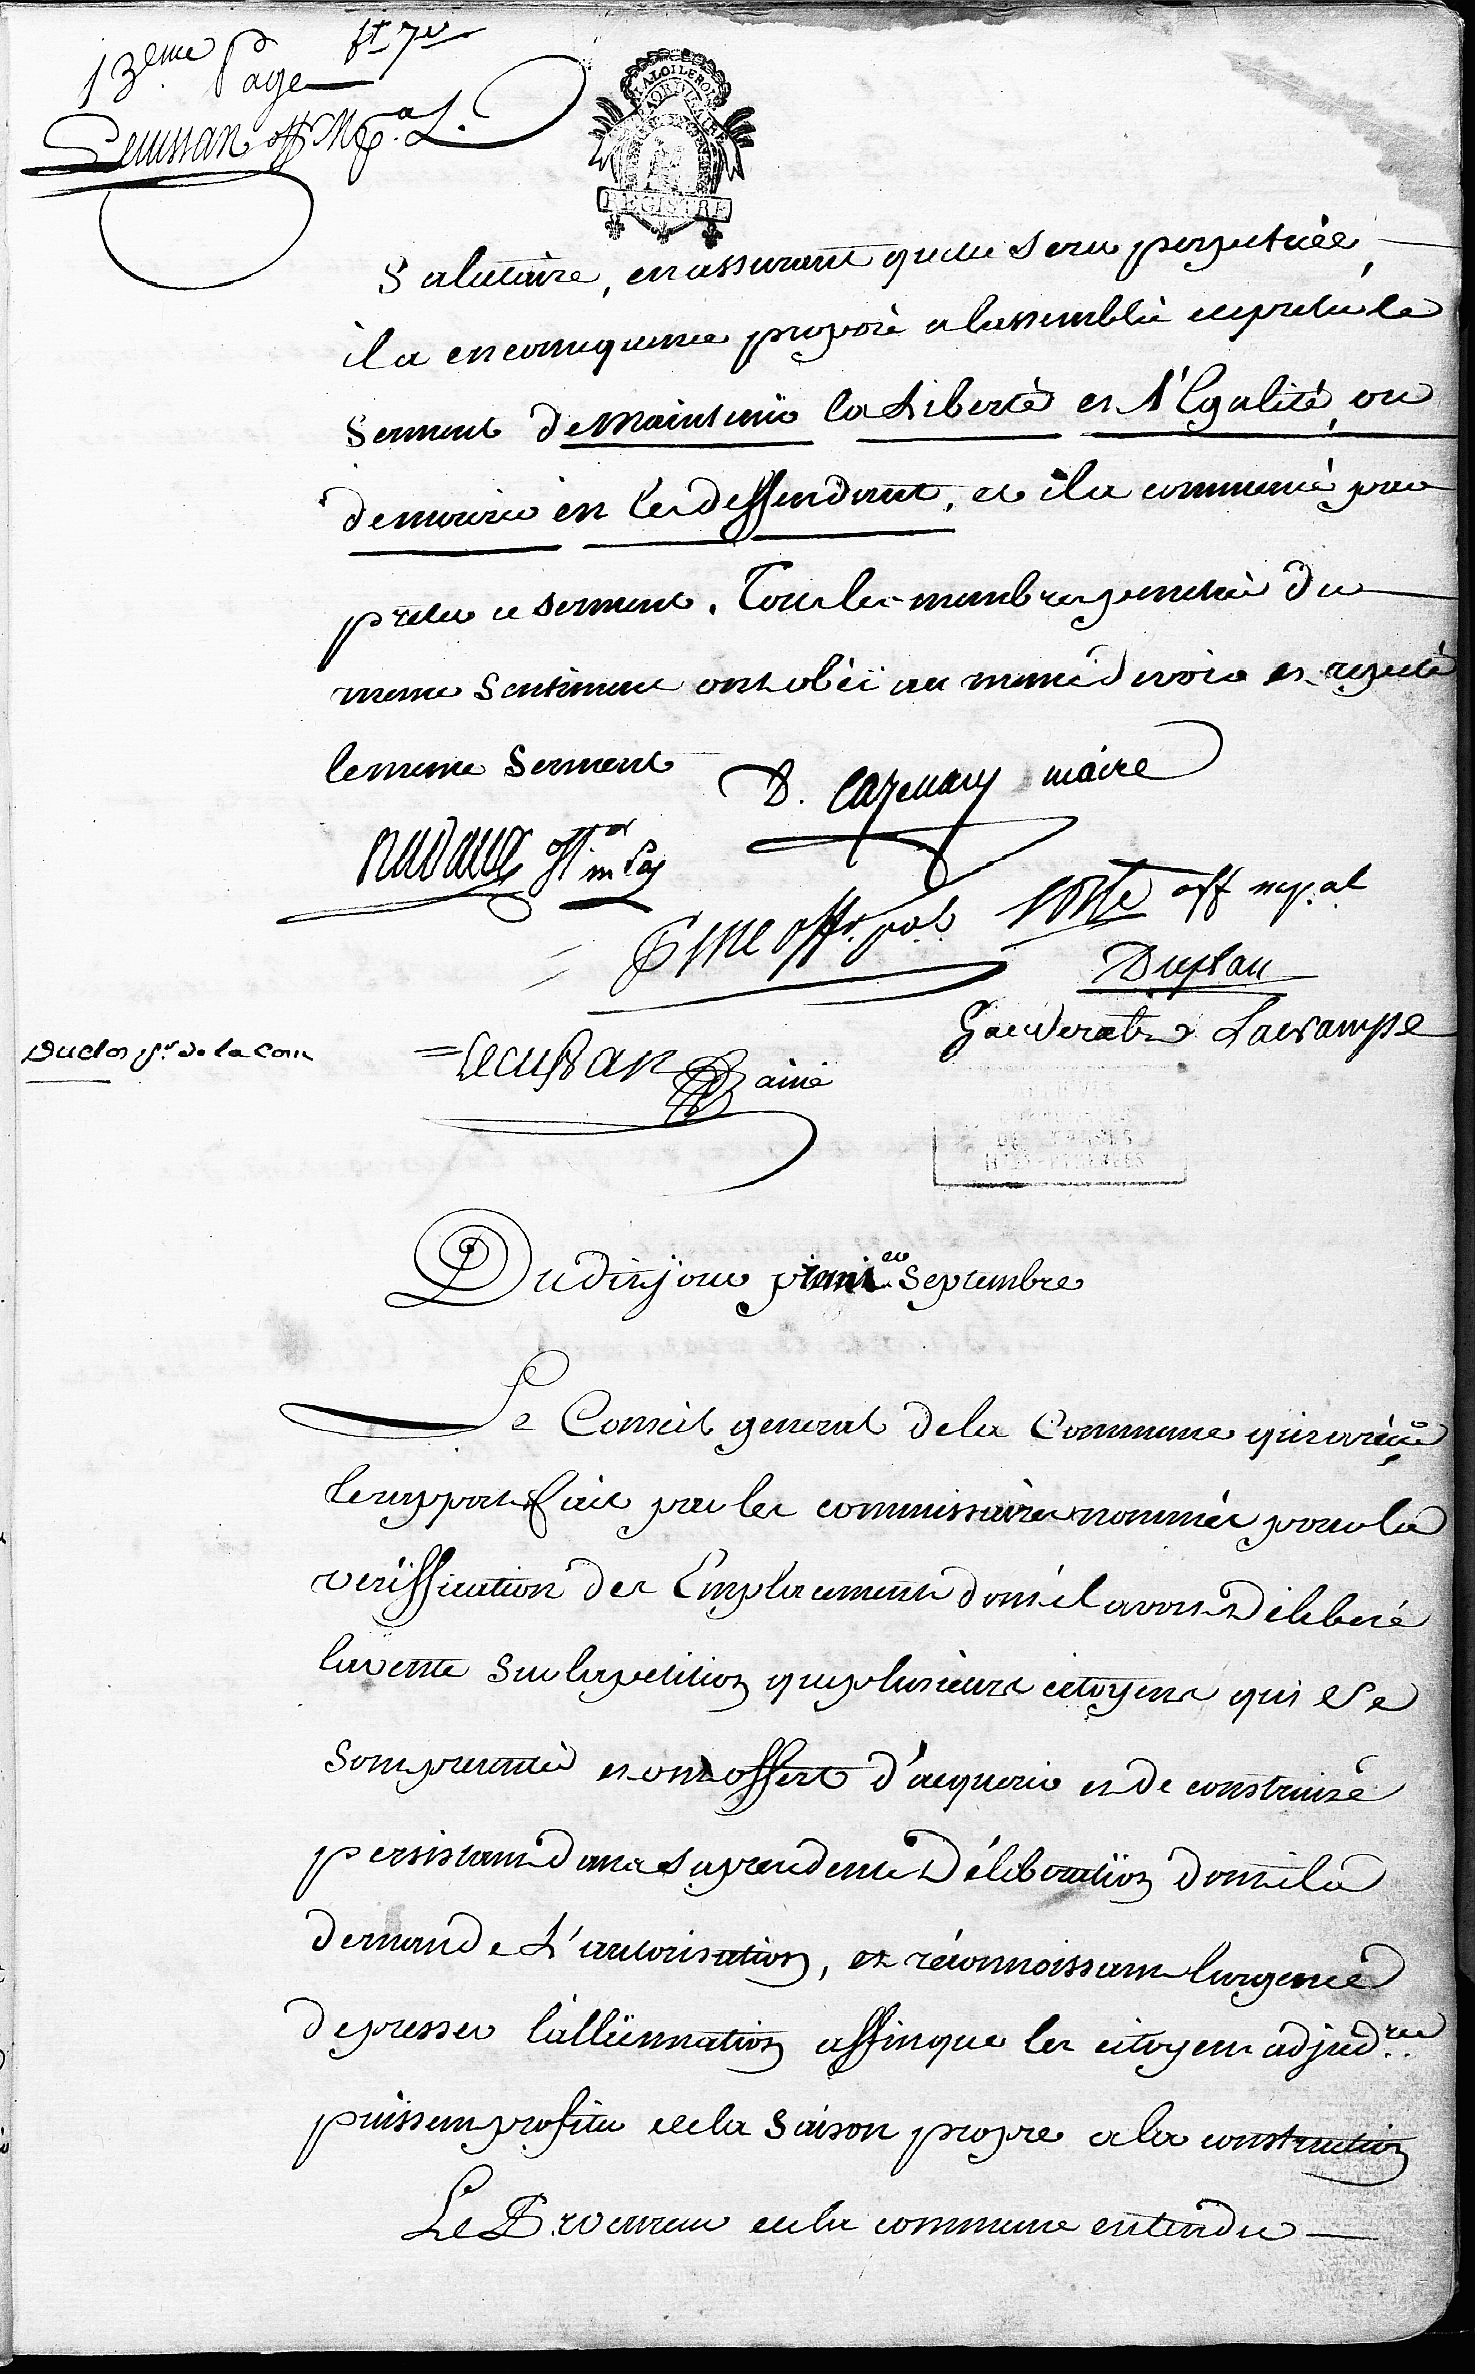 13eme Page
Lecussan off Mpal.
LA LOI LE ROI
REGISTRE
Salutaire, en assurant quelle sera perpetuée,
il a en consequence proposé a lassemblée de preter le
serment de maintenir la Liberté et l'Egalité, ou
de mourir en les deffendant, et il a commencé par
preter ce serment. Tous les membres penetrés du
meme sentiment ont obéi au meme devoir et repeté
le meme serment
D. Cazenavy maire
off mpal
off mpal
off mpal
Duplan
Lacrampe
Duclos pr. de la Com
Lecussan ainé
Du dit jour premier Septembre
Le Conseil general de la Commune qui a reçu
le rapport fait par les commissaires nommés pour la
veriffication des Emplacements dont il avoit Déliberé
la vente sur la petition que plusieurs citoyens qui se
sont presentés et ont offert d'acquerir et de construire
persistant dans sa precedente Déliberation dont il a
demandé L'autorisation, et réconnoissant lurgence
de presser l'alliennation affin que les citoyens adjud.res
puissent profiter de la Saison propre a la construction
Le Procureur de la commune entendu